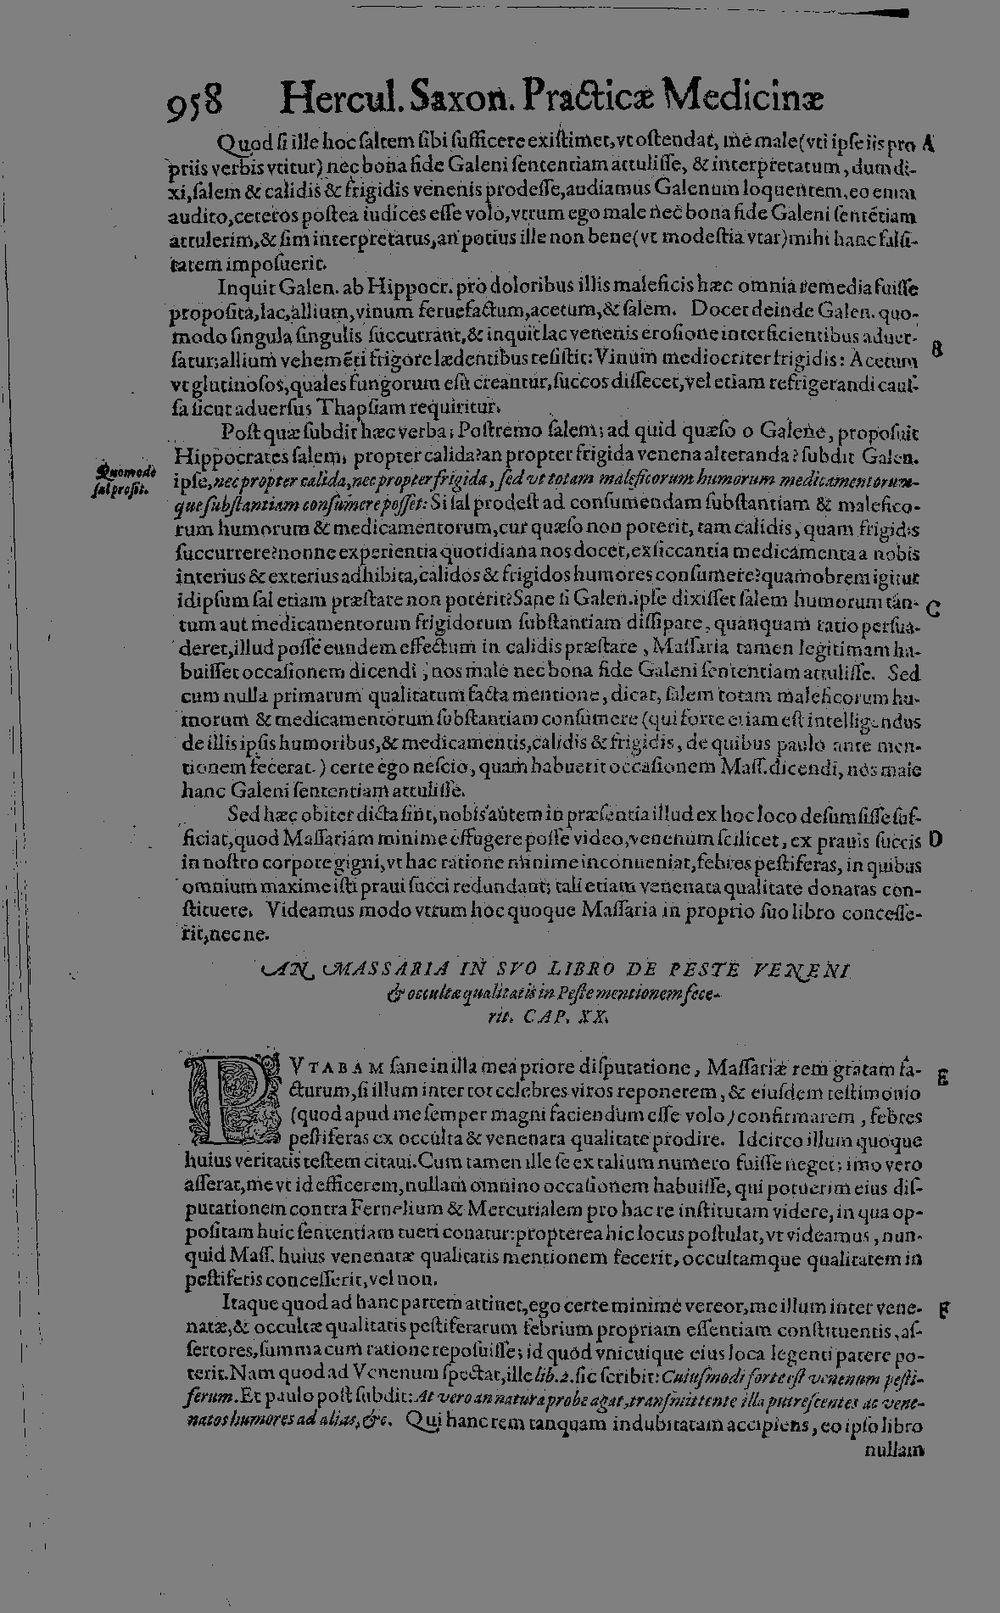 958 Hercul. Saxon. Practicæ Medicinæ
Quod ſi ille hoc ſaltem ſibi ſufficere exiſtimet, vt oſtendat, me male (vti ipſe iis pro A
priis verbis vtitur) nec bona fide Galeni ſententiam attuliſſe, & interpretatum, dum di-
xi, ſalem & calidis & frigidis venenis prodeſſe, audiamus Galenum loquentem, eo enim
audito, ceteros poſtea iudices eſſe volo, vtrum ego male nec bona fide Galeni ſentẽtiam
attulerim, & ſim interpretatus, an potius ille non bene (vt modeſtia vtar) mihi hanc falſi-
tatem impoſuerit.
Inquit Galen. ab Hippocr. pro doloribus illis maleficis hæc omnia remedia fuiſſe
propoſita, lac, allium, vinum feruefactum, acetum, & ſalem. Docet deinde Galen. quo-
modo ſingula ſingulis ſuccurrant, & inquit lac venenis eroſione interficientibus aduer-
ſatur; allium vehemẽti frigore lædentibus reſiſtit: Vinum mediocriter frigidis: Acetum B
vt glutinoſos, quales fungorum eſu creantur, ſuccos diſſecet, vel etiam refrigerandi cauſ-
ſa ſicut aduerſus Thapſiam requiritur.
Poſt quæ ſubdit hæc verba; Poſtremo ſalem; ad quid quæſo o Galene, propoſuit
Hippocrates ſalem, propter calida? an propter frigida venena alteranda? ſubdit Galen.
Quomodo
ſal proſit.
ipſe, nec propter calida, nec propter frigida, ſed vt totam maleficorum humorum medicamentorum-
que ſubſtantiam conſumere poſſet: Si ſal prodeſt ad conſumendam ſubſtantiam & malefico-
rum humorum & medicamentorum, cur quæſo non poterit, tam calidis, quam frigidis
ſuccurrere? nonne experientia quotidiana nos docet, exſiccantia medicamenta a nobis
interius & exterius adhibita, calidos & frigidos humores conſumere? quamobrem igitur
idipſum ſal etiam præſtare non poterit? Sane ſi Galen. ipſe dixiſſet ſalem humorum tan- C
tum aut medicamentorum frigidorum ſubſtantiam diſſipare, quanquam ratio perſua-
deret, illud poſſe eundem effectum in calidis præſtare, Maſſaria tamen legitimam ha-
buiſſet occaſionem dicendi, nos male nec bona fide Galeni ſententiam attuliſſe. Sed
cum nulla primarum qualitatum facta mentione, dicat, ſalem totam maleficorum hu-
morum & medicamentorum ſubſtantiam conſumere (qui forte etiam eſt intelligendus
de illis ipſis humoribus, & medicamentis, calidis & frigidis, de quibus paulo ante men-
tionem fecerat.) certe ego neſcio, quam habuerit occaſionem Maſſ. dicendi, nos male
hanc Galeni ſententiam attuliſſe.
Sed hæc obiter dicta ſint, nobis autem in præſentia illud ex hoc loco deſumſiſſe ſuf-
ficiat, quod Maſſariam minime effugere poſſe video, venenum ſcilicet, ex prauis ſuccis D
in noſtro corpore gigni, vt hac ratione minime inconueniat, febres peſtiferas, in quibus
omnium maxime iſti praui ſucci redundant; tali etiam venenata qualitate donatas con-
ſtituere. Videamus modo vtrum hoc quoque Maſſaria in proprio ſuo libro conceſſe-
rit, nec ne.
AN MASSARIA IN SVO LIBRO DE PESTE VENENI
& occultæ qualitatis in Peſte mentionem fece-
rit. CAP. XX.
PVTABAM ſane in illa mea priore diſputatione, Maſſariæ rem gratam fa- E
cturum, ſi illum inter tot celebres viros reponerem, & eiuſdem teſtimonio
(quod apud me ſemper magni faciendum eſſe volo) confirmarem, febres
peſtiferas ex occulta & venenata qualitate prodire. Idcirco illum quoque
huius veritatis teſtem citaui. Cum tamen ille ſe ex talium numero fuiſſe neget; imo vero
aſſerat, me vt id efficerem, nullam omnino occaſionem habuiſſe, qui potuerim eius diſ-
putationem contra Fernelium & Mercurialem pro hac re inſtitutam videre, in qua op-
poſitam huic ſententiam tueri conatur: propterea hic locus poſtulat, vt videamus, nun-
quid Maſſ. huius venenatæ qualitatis mentionem fecerit, occultamque qualitatem in
peſtiferis conceſſerit, vel non.
Itaque quod ad hanc partem attinet, ego certe minime vereor, me illum inter vene- F
natæ, & occultæ qualitatis peſtiferarum febrium propriam eſſentiam conſtituentis, aſ-
ſertores, ſumma cum ratione repoſuiſſe; id quod vnicuique eius loca legenti patere po-
terit. Nam quod ad Venenum ſpectat, ille lib. 2. ſic ſcribit: Cuiuſmodi forte eſt venenum peſti-
ferum. Et paulo poſt ſubdit: At vero an natura probe agat, tranſmittente illa putreſcentes ac vene-
natos humores ad alias, &c. Qui hanc rem tanquam indubitatam accipiens, eo ipſo libro
nullam